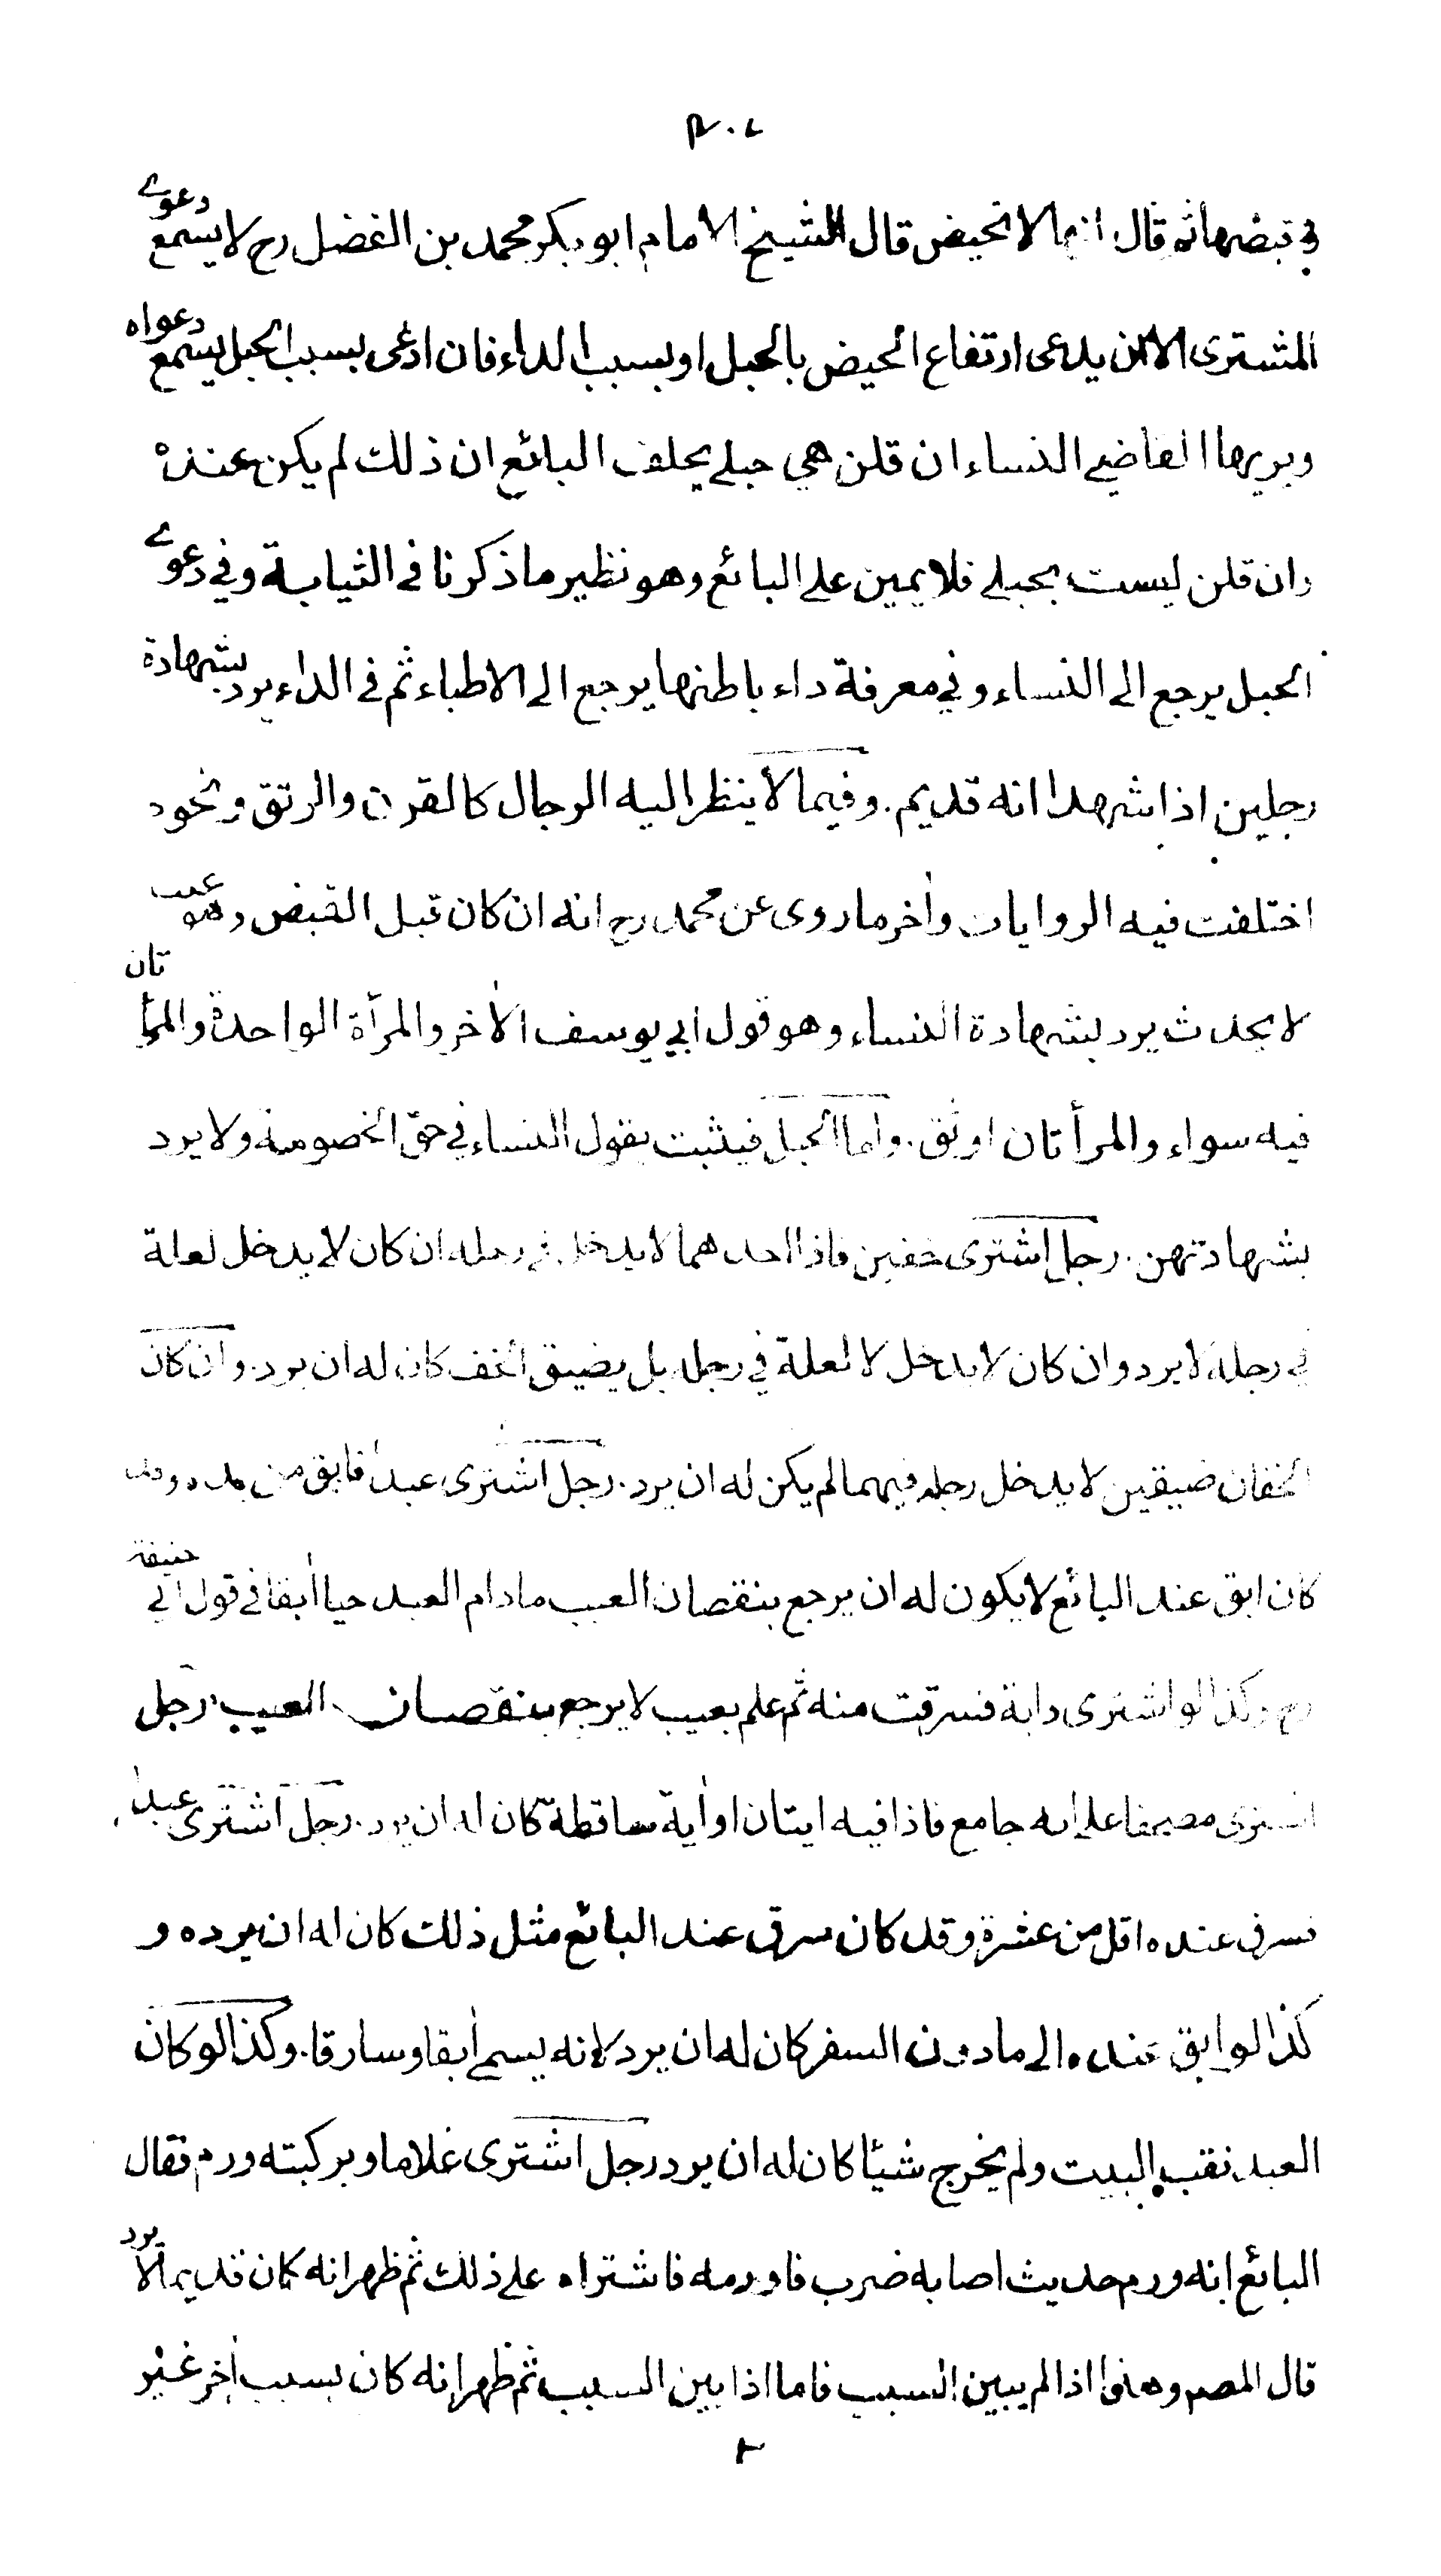 ٢٠٧
في قبضها ثم قال انها لا تحيض قال الشيخ الامام ابو بكر محمد بن الفضل رح لا يسمع دعوے
المشترى الا ان يدعى ارتفاع الحيض بالحبل او بسبب الداء فان ادعى بسبب الحبل يسمع دعواه
ويريها القاضي النساء ان قلن هي حبلے يحلف البائع ان ذلك لم يكن عنده
وان قلن ليست بحبلے فلا يمين علے البائع وهو نظير ما ذكرنا فى الثيابة وفي دعوے
الحبل يرجع الى النساء وفي معرفة داء باطنها يرجع الى الاطباء ثم فى الداء يرد بشهادة
رجلين اذا شهدا انه قديم . وفيما لا ينظر اليه الرجال كالقرن والرتق ونحوه
اختلفت فيه الروايات وأخر ما روى عن محمد رح انه ان كان قبل القبض وهو عيب
لا يحدث يرد بشهادة النساء وهو قول ابي يوسف الأخر والمرأة الواحدة والمرأتان
فيه سواء والمرأتان اوثق . واما الحبل فيثبت بقول النساء في حق الخصومة ولا يرد
بشهادتهن . رجل اشترى خفين فاذا احدهما لا يدخل في رجله ان كان لا يدخل لعلة
في رجله لا يرد وان كان لا يدخل لا لعلة في رجله بل يضيق الخف كان له ان يرد . وان كان
الخفان ضيقين لا يدخل رجله فيهما لم يكن له ان يرد . رجل اشترى عبدا فابق من يده وقد
كان ابق عند البائع لا يكون له ان يرجع بنقصان العيب ما دام العبد حيا أبقا في قول ابي حنيفة
رح وكذا لو اشترى دابة فسرقت منه ثم علم بعيب لا يرجع بنقصان العيب . رجل
اشترى مصحفا علے انه جامع فاذا فيه ايتان او أية ساقطة كان له ان يرد . رجل اشترى عبدا
فسرق عنده اقل من عشرة وقد كان سرق عند البائع مثل ذلك كان له ان يرده و
كذا لو ابق عنده الى ما دون السفر كان له ان يرد لانه يسمے أبقا وسارقا . وكذا لو كان
العبد نقب البيت ولم يخرج شيئا كان له ان يرد رجل اشترى غلاما وبركبته ورم فقال
البائع انه ورم حديث اصابه ضرب فاورمه فاشتراه علے ذلك ثم ظهر انه كان قديما لا يرد
قال المصم وهذا اذا لم يبين السبب فاما اذا بين السبب ثم ظهر انه كان بسبب أخر غير
٢